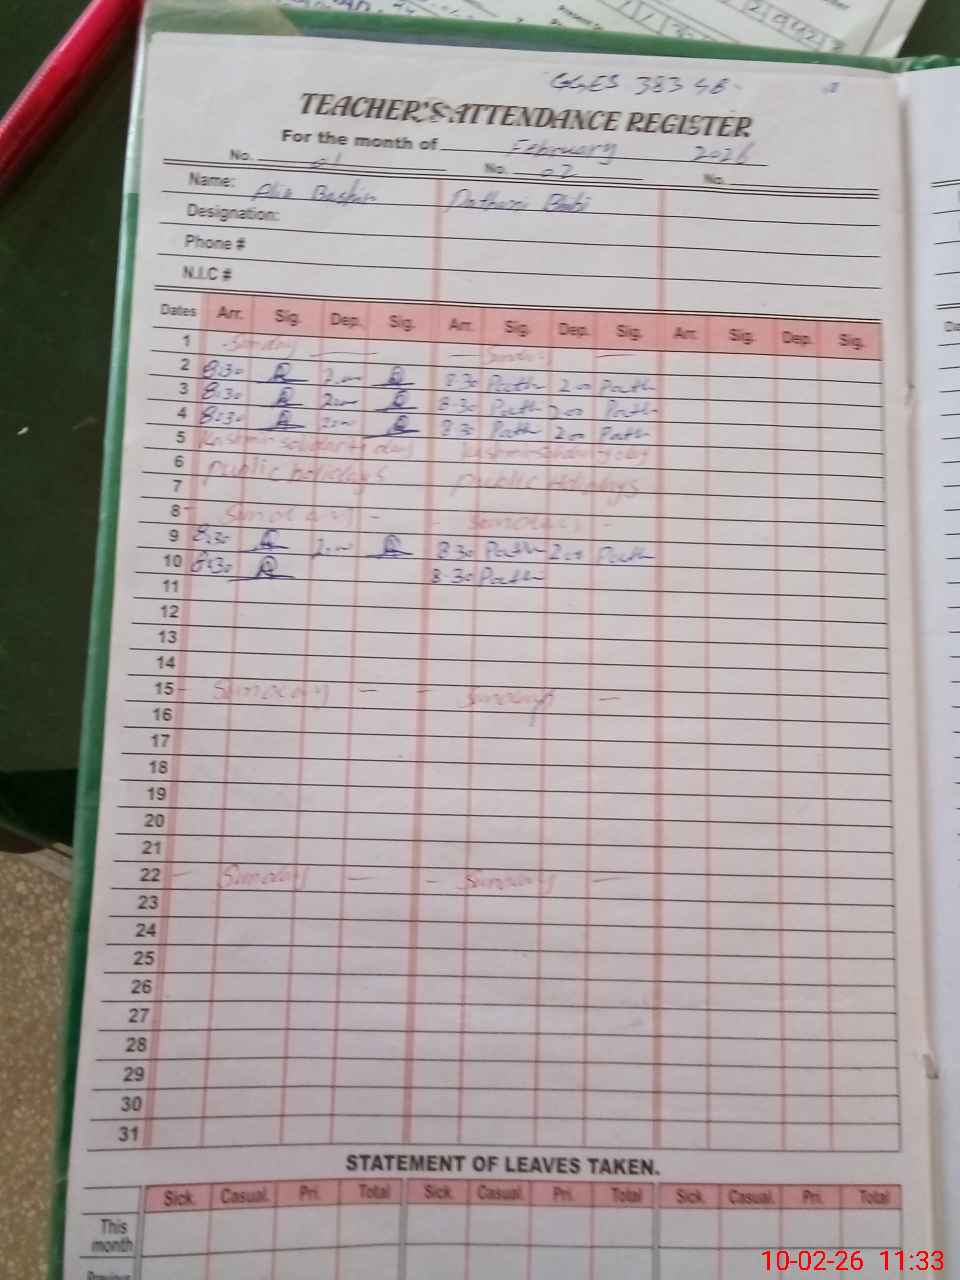 GGES 383 GB
TEACHER'S ATTENDANCE REGISTER
For the month of February 2026
No. 01 No. 02 No.
Name: Bashir Bibi
Designation:
Phone #
N.I.C #
Dates Arr. Sig. Dep. Sig. Arr. Sig. Dep. Sig. Arr. Sig. Dep. Sig.
1 Sunday — — Sunday —
2 8:30 2:00 8:30 Path 2:00 Path
3 8:30 2:00 8:30 Path 2:00 Path
4 8:30 2:00 8:30 Path 2:00 Path
5 Kashmir solidarity day Kashmir solidarity day
6 public holidays public holidays
7
8 - Sunday - - Sunday -
9 8:30 2:00 8:30 Path 2:00 Path
10 8:30 8:30 Path
11
12
13
14
15 - Sunday — - Sunday —
16
17
18
19
20
21
22 — Sunday — - Sunday —
23
24
25
26
27
28
29
30
31
STATEMENT OF LEAVES TAKEN.
Sick. Casual. Pri. Total Sick. Casual. Pri. Total Sick. Casual. Pri. Total
This month
Previous
10-02-26 11:33